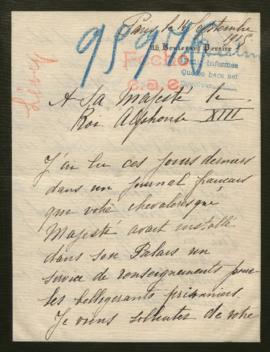 Paris le 10 Septembre
1915
Boulevard Pereire
95978
Fecho
c.a.e.
Lévy
A Sa Majesté le
Roi Alphonse XIII
J'ai lu ces jours derniers
dans un journal français
que votre chevaleresque
Majesté avait installé
dans son Palais un
service de renseignements pour
les belligérants prisonniers
Je viens solliciter de votre